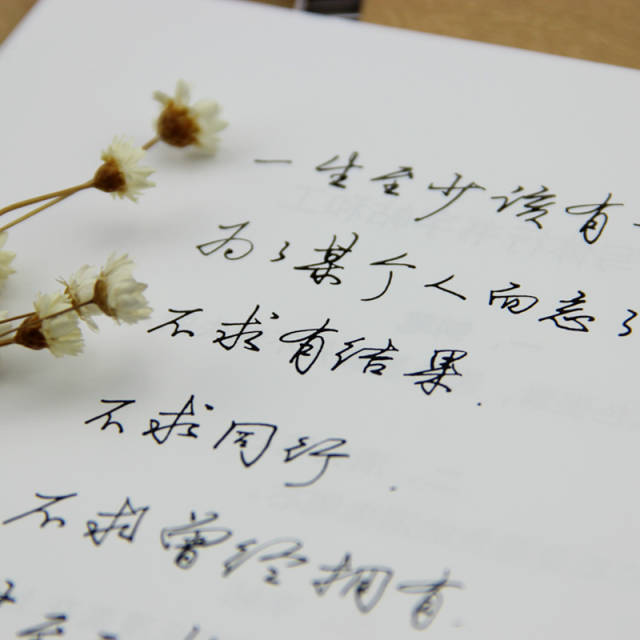 一生至少该有
为了某个人而忘了
不求有结果.
不求同行.
不求曾经拥有